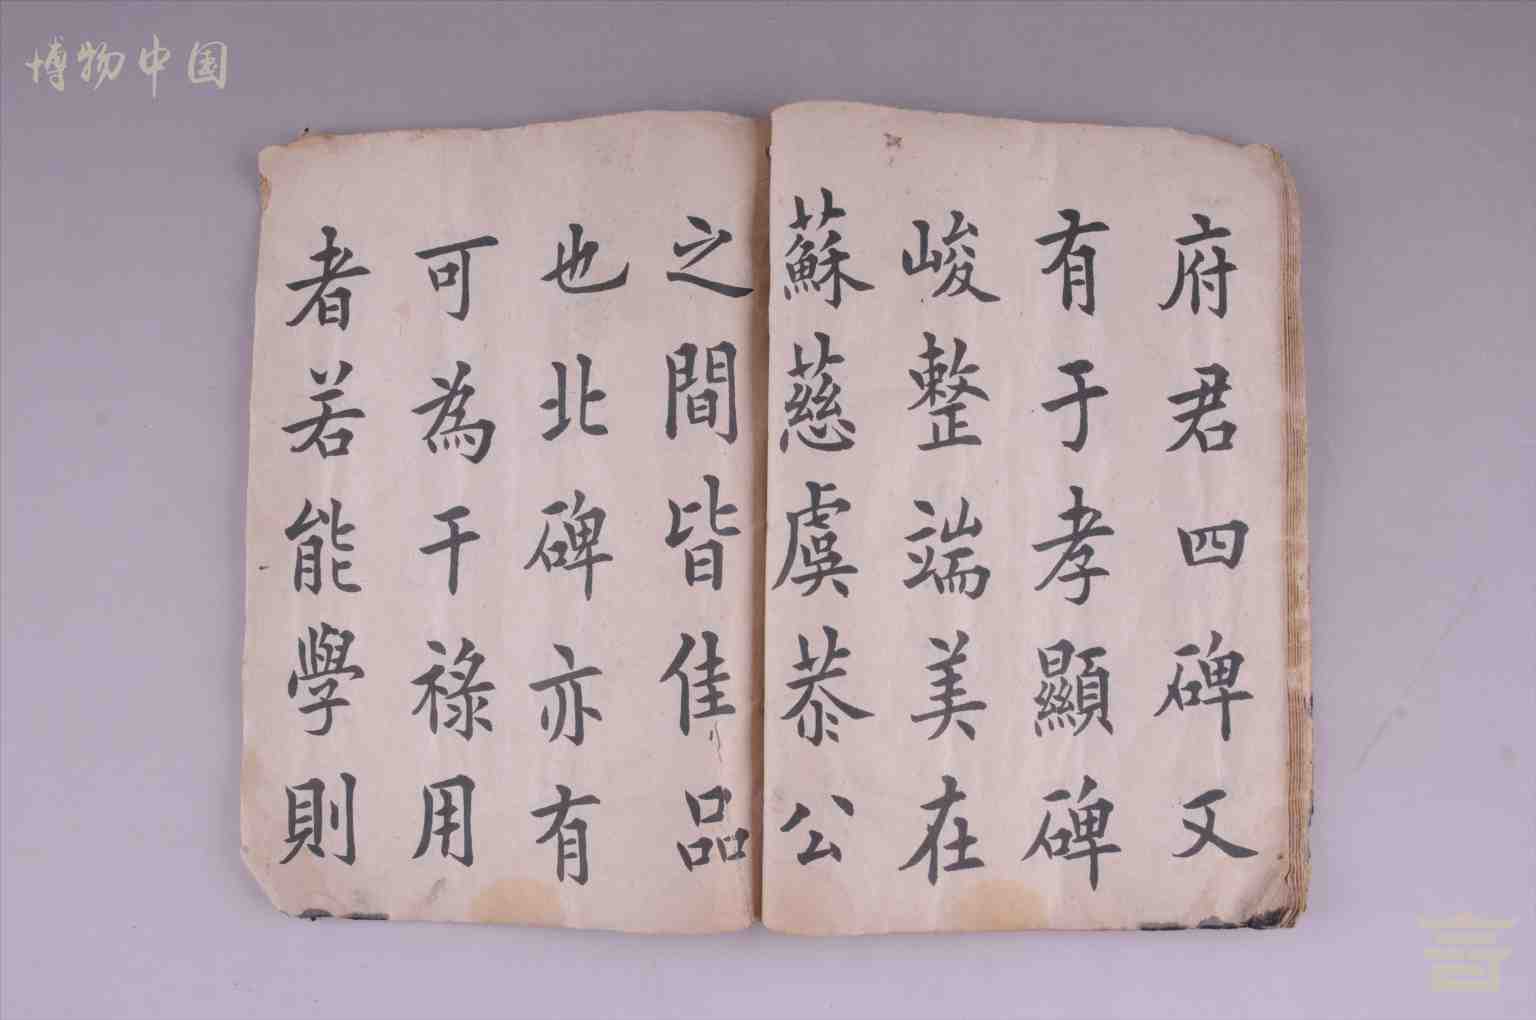 博物中国
府君四碑又
有于孝顯碑
峻整端美在
蘇慈虞恭公
之間皆佳品
也北碑亦有
可為干祿用
者若能學則